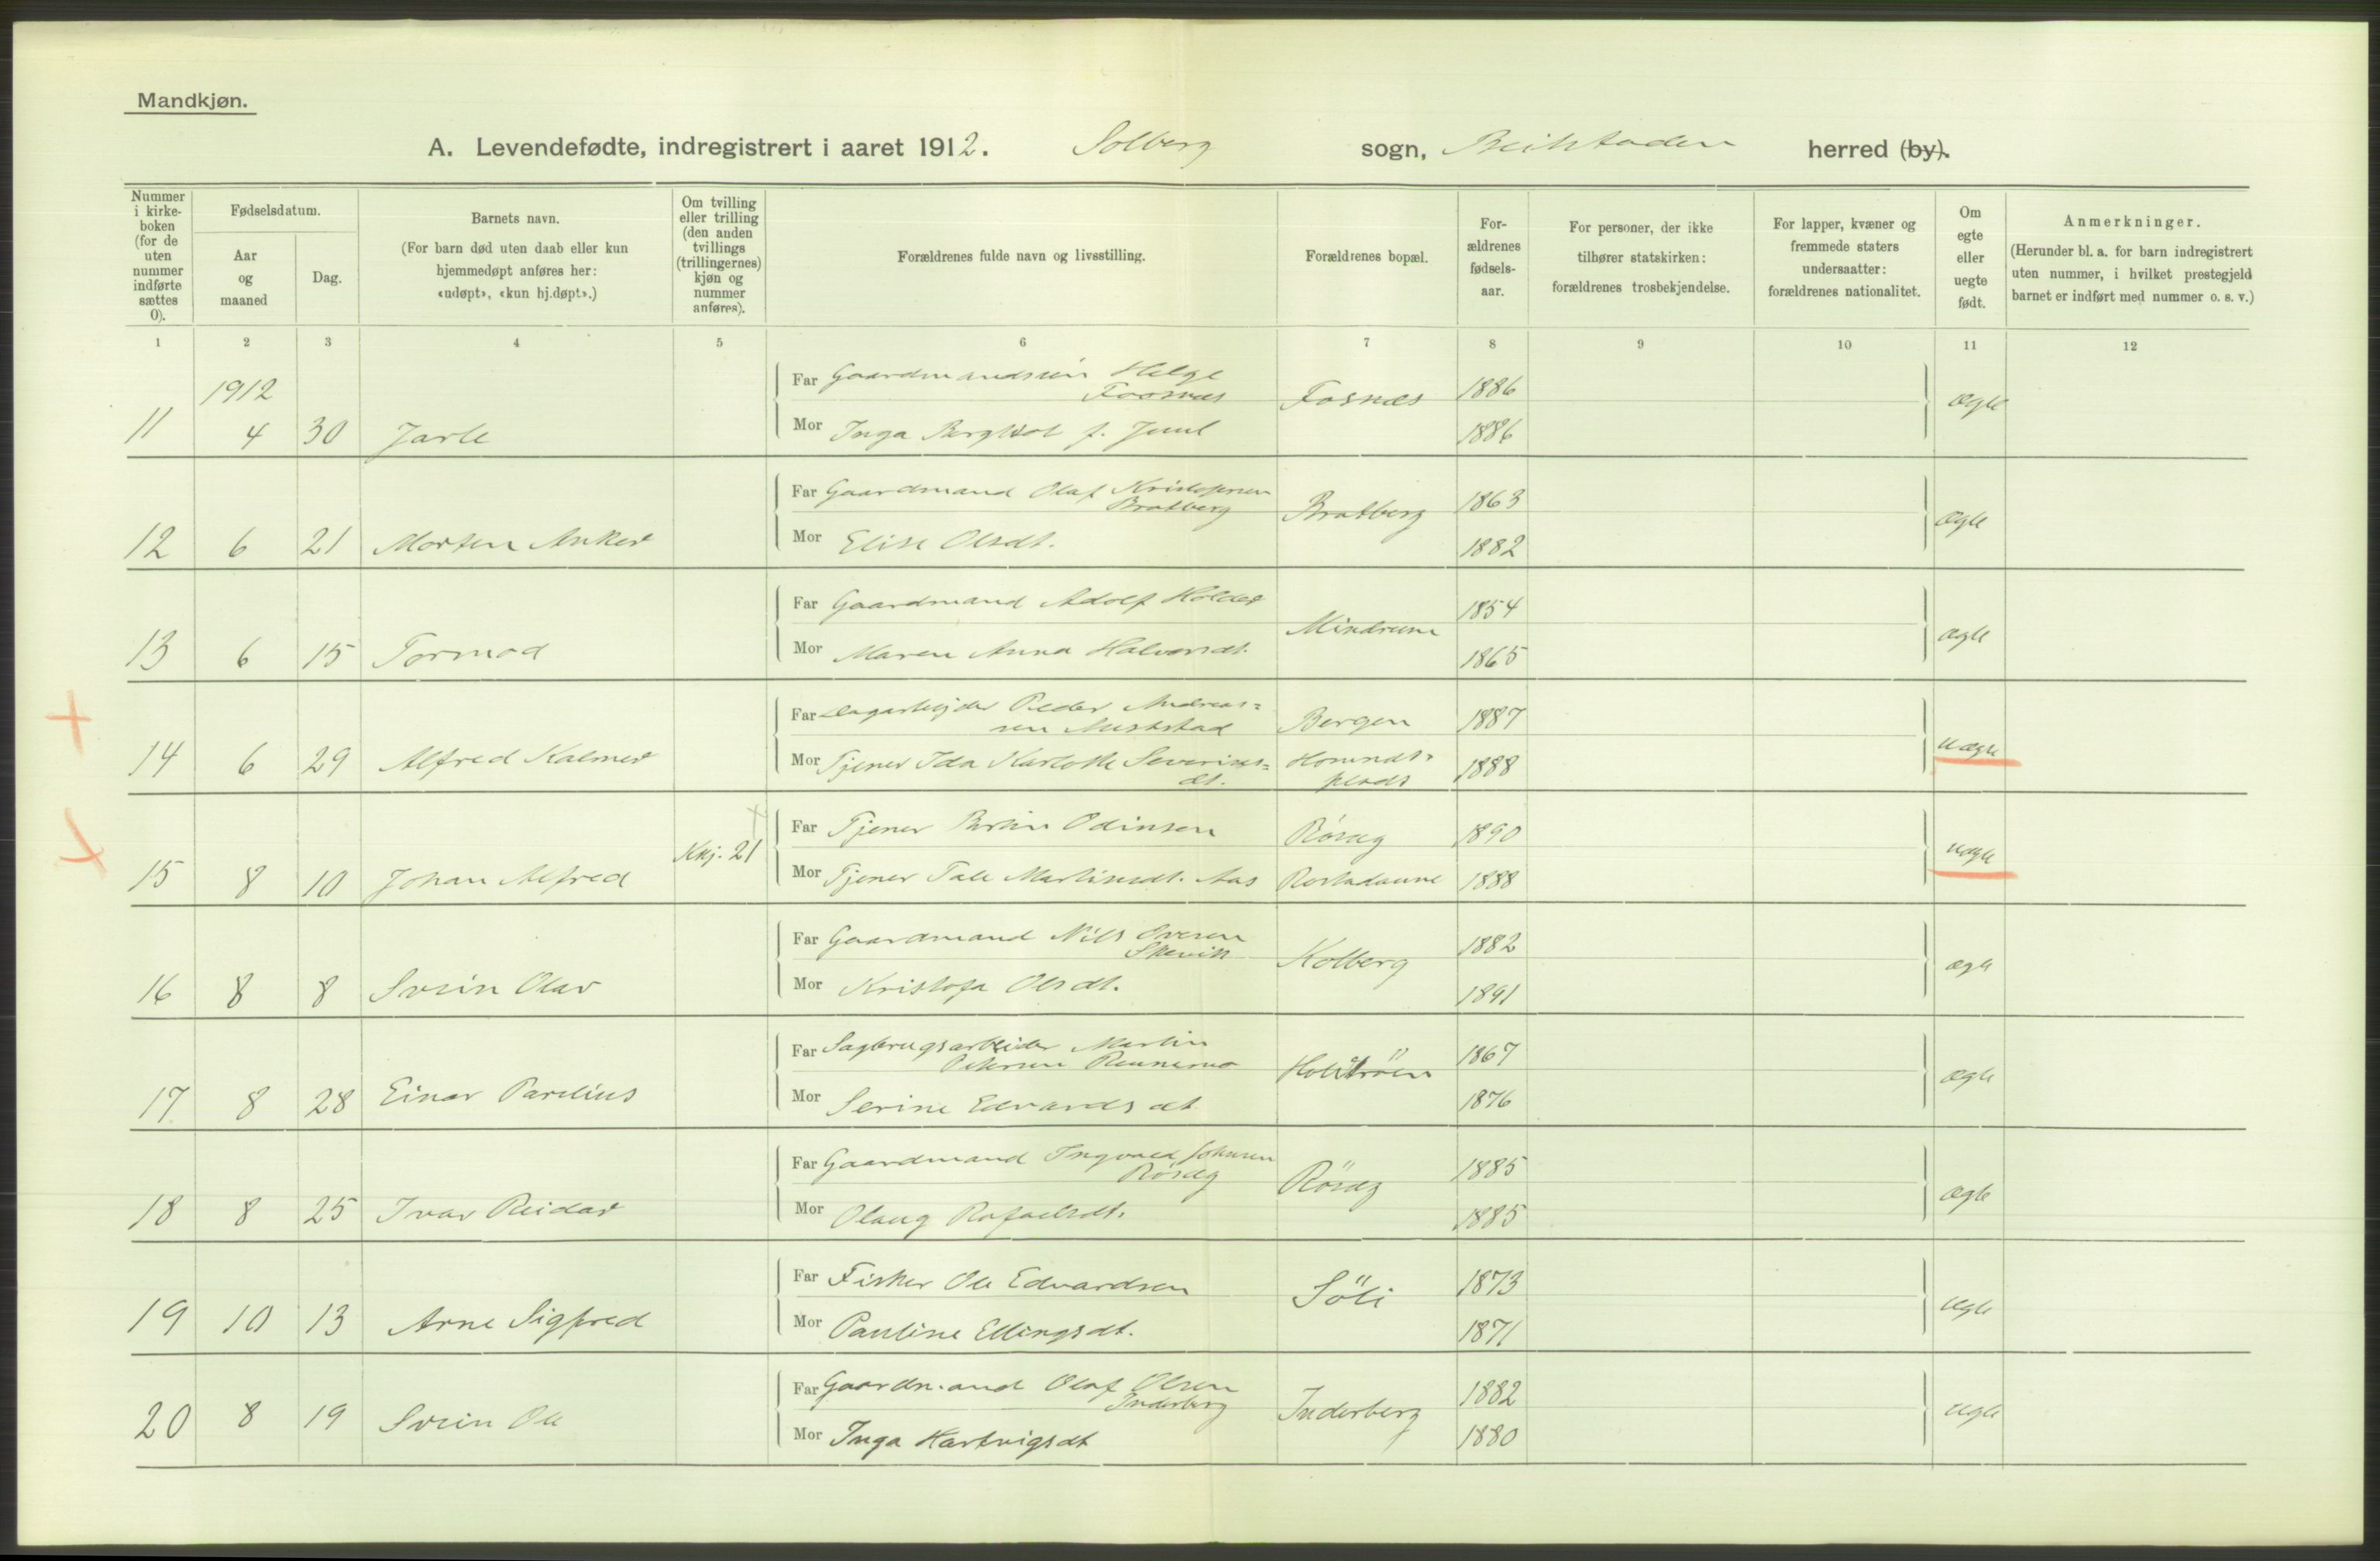 Mandkjøn.
A. Levendefødte, indregistrert i aaret 1912. Solberg sogn, Beitstaden herred (by).
Nummer i kirke-boken (for de uten nummer indførte sættes 0).
Fødselsdatum.
Aar og maaned
Dag.
Barnets navn.
(For barn død uten daab eller kun hjemmedøpt anføres her: «udøpt», «kun hj.døpt».)
Om tvilling eller trilling (den anden tvillings (trillingernes) kjøn og nummer anføres).
Forældrenes fulde navn og livsstilling.
Forældrenes bopæl.
For-ældrenes fødsels-aar.
For personer, der ikke tilhører statskirken: forældrenes trosbekjendelse.
For lapper, kvæner og fremmede staters undersaatter: forældrenes nationalitet.
Om egte eller uegte født.
Anmerkninger.
(Herunder bl. a. for barn indregistrert uten nummer, i hvilket prestegjeld barnet er indført med nummer o. s. v.)
1 2 3 4 5 6 7 8 9 10 11 12
1912
Far Gaardmandssøn Helge Fosnæs Fosnæs 1886 ægte
11 4 30 Jarle Mor Inga Bergliot f. Juul 1886
Far Gaardmand Olaf Kristofersen Bratberg Bratberg 1863 ægte
12 6 21 Morten Anker Mor Elise Olsdt. 1882
Far Gaardmand Adolf Holder Mindrum 1854 ægte
13 6 15 Tormod Mor Maren Anna Halvorsdt. 1865
Far Dagarbejder Peder Andreas=
sen Bergen 1887 uægte
14 6 29 Alfred Kalmer Mor Tjener Ida Karlotte Severins=
dt. plads 1888
Far Tjener Odinsen Rösæg 1890 uægte
15 8 10 Johan Alfred Kkj. 21 Mor Tjener Tale Martinsdt. Aas 1888
Far Gaardmand Nils Ovesen Skevik Kolberg 1882 ægte
16 8 8 Svein Olav Mor Kristofa Olsdt. 1891
Far Sagbrugsarbeider Martin
Petersen 1867 ægte
17 8 28 Einar Parelius Mor Serine Edvardsdt 1876
Far Gaardmand Ingvald Johnsen Rösæg Rösæg 1885 ægte
18 8 25 Ivar Reidar Mor Olaug Rafaelsdt. 1885
Far Fisker Ole Edvardsen Söli 1873 ægte
19 10 13 Arne Sigfred Mor Pauline Ellingsdt. 1871
Far Gaardmand Olaf Olsen Inderberg Inderberg 1882 ægte
20 8 19 Svein Ole Mor Inga Hartvigsdt 1880